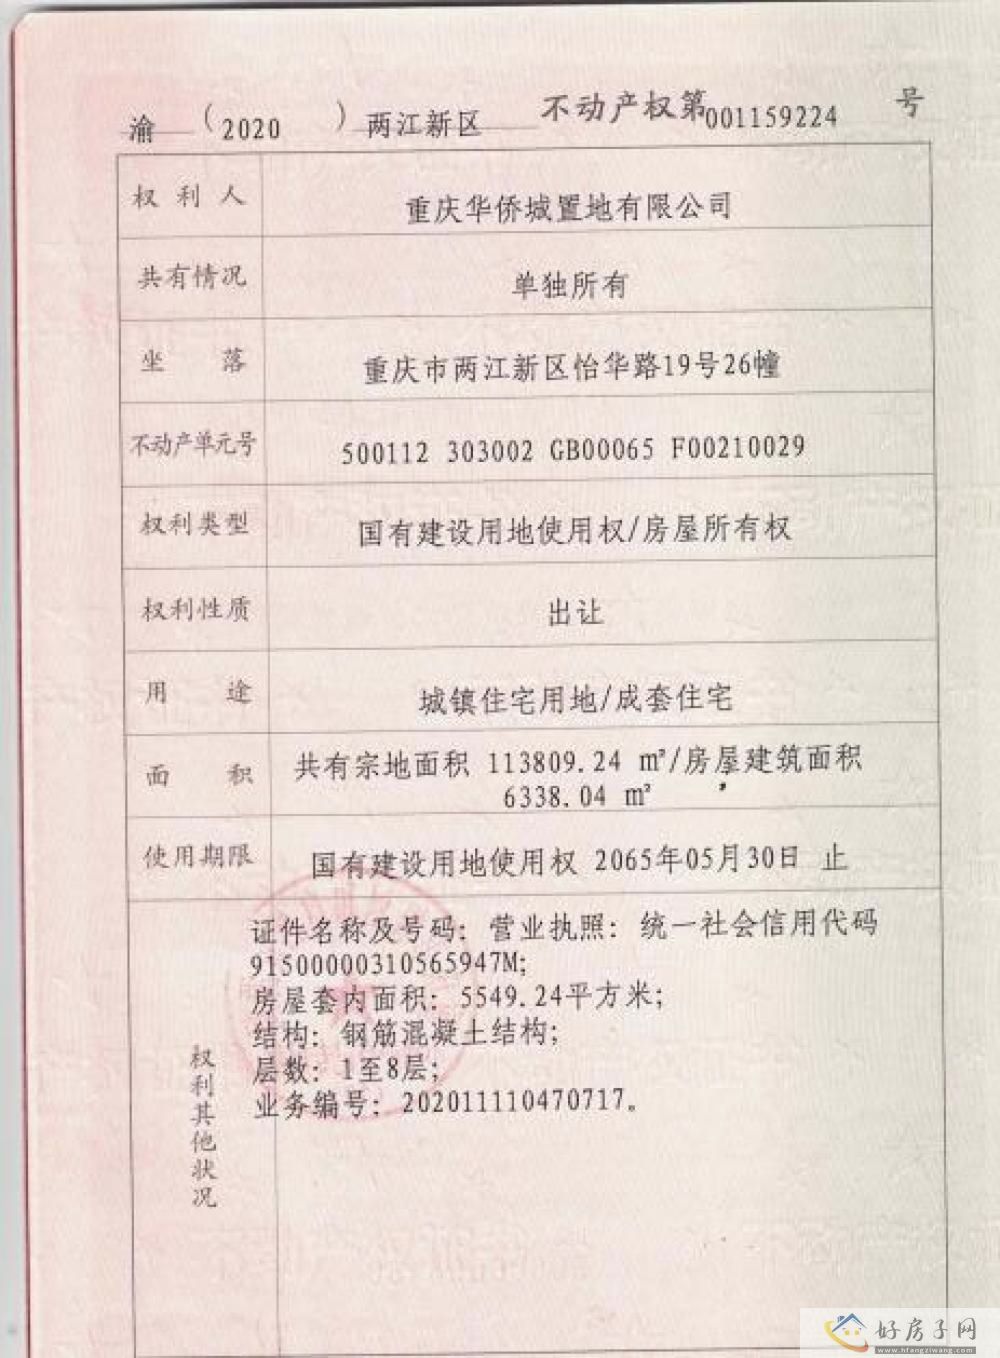 渝（2020）两江新区 不动产权第001159224号
权利人 重庆华侨城置地有限公司
共有情况 单独所有
坐落 重庆市两江新区怡华路19号26幢
不动产单元号 500112 303002 GB00065 F00210029
权利类型 国有建设用地使用权/房屋所有权
权利性质 出让
用途 城镇住宅用地/成套住宅
面积 共有宗地面积 113809.24 ㎡/房屋建筑面积
6338.04 ㎡
使用期限 国有建设用地使用权 2065年05月30日 止
权利其他状况
证件名称及号码：营业执照：统一社会信用代码
91500000310565947M；
房屋套内面积：5549.24平方米；
结构：钢筋混凝土结构；
层数：1至8层；
业务编号：202011110470717。
好房子网
www.hfangziwang.com